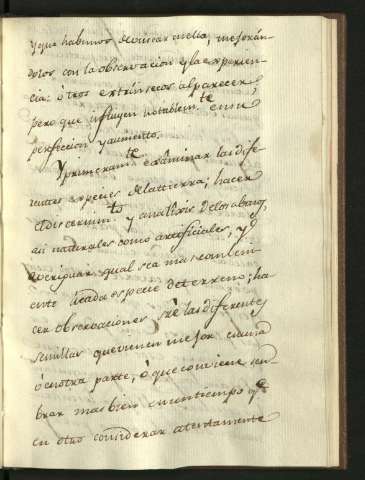 y que habimos de usar en ella, mejorán-
dolos con la observacion y la experien-
cia: ótros extrínsecos al parecer,
pero que influyen notablem.te en su
perfeccion y aumento.
Y primeram.te exâminar las dife-
rentes especies de la tierra; hacer
el discernim.to y analisis de los abonos,
asi naturales como artificiales, y
averiguar qual sea mas conveni-
ente á cada especie de terreno; ha-
cer observaciones sre las diferentes
semillas que vienen mejor en una
ó en otra parte, ó que conviene sem-
brar mas bien en un tiempo q.e
en otro considerar atentamente